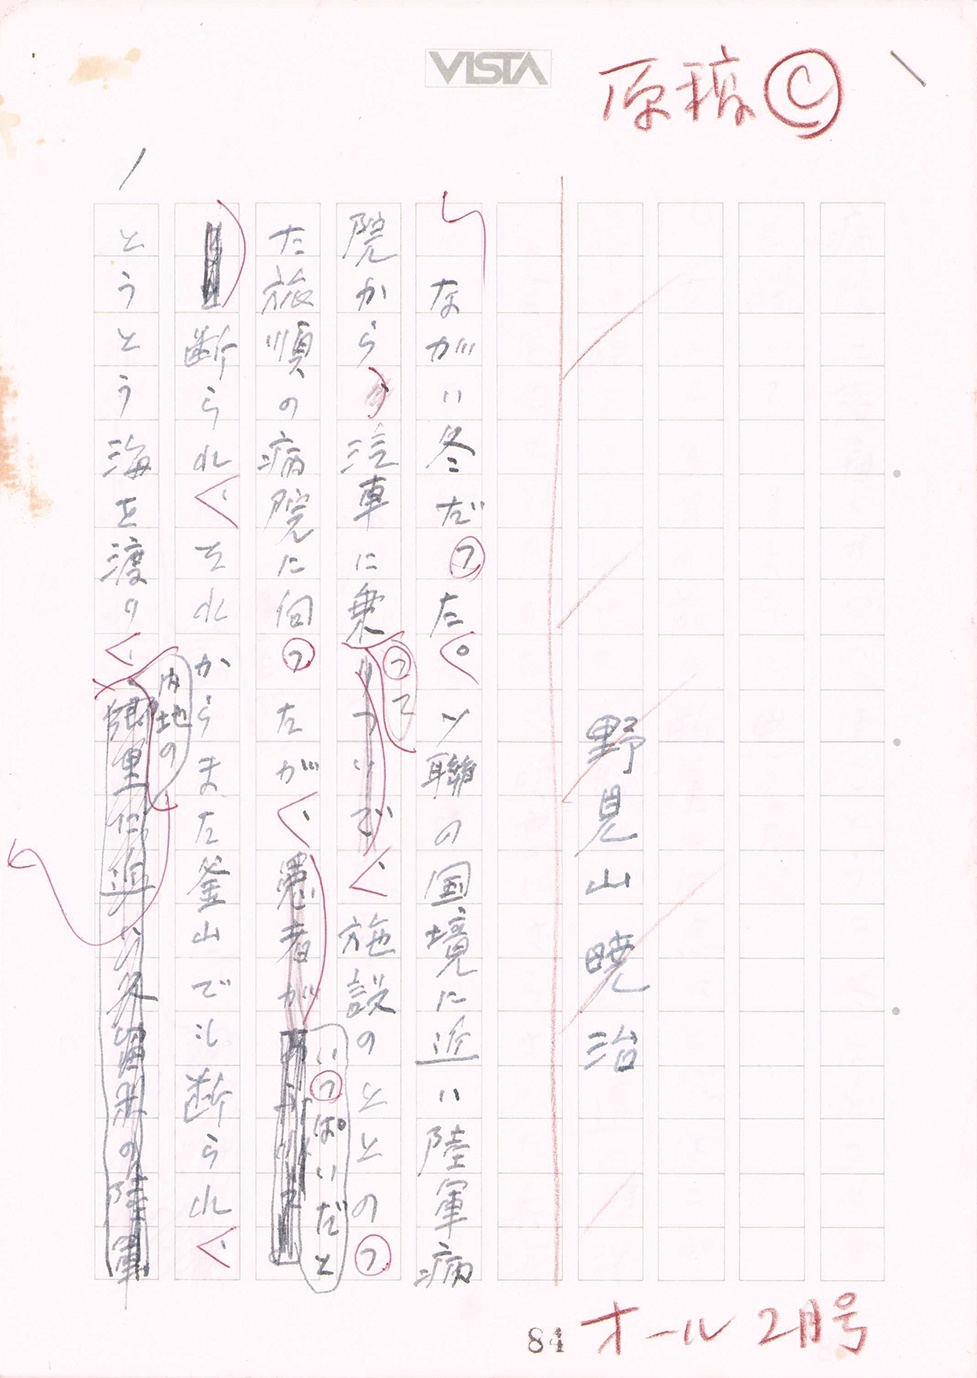 VISTA
原稿Ⓒ
野見山暁治
ながい冬だった。ソ聯の国境に近い陸軍病
院から汽車に乗りついで、施設のととのっ
って
た旅順の病院に向ったが、患者が
いっぱいだと
断られ、それからまた釜山でも断られ、
とうとう海を渡り、郷里に近い久留米の陸軍
内地の
84
オール2月号